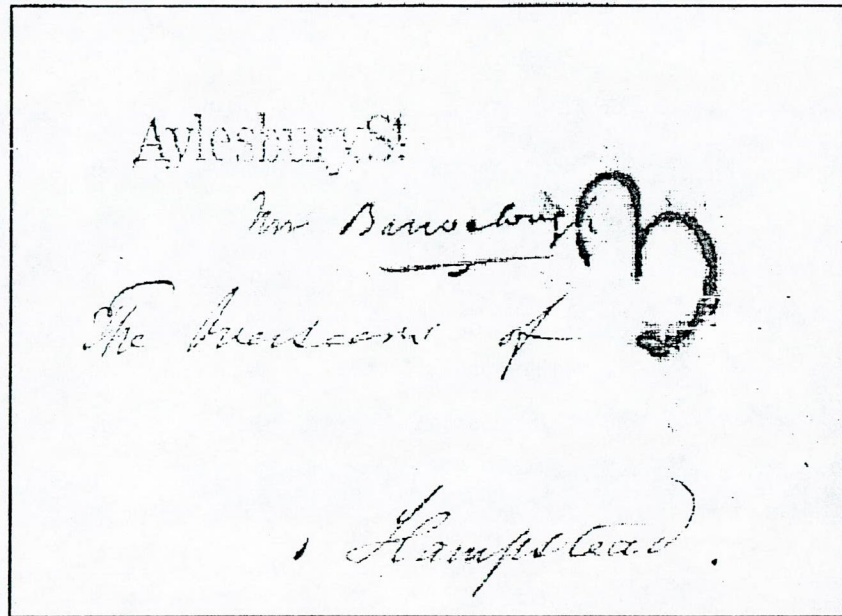 Aylesbury.St
Mr Barraclough
3
The Overseers of
Hampstead.